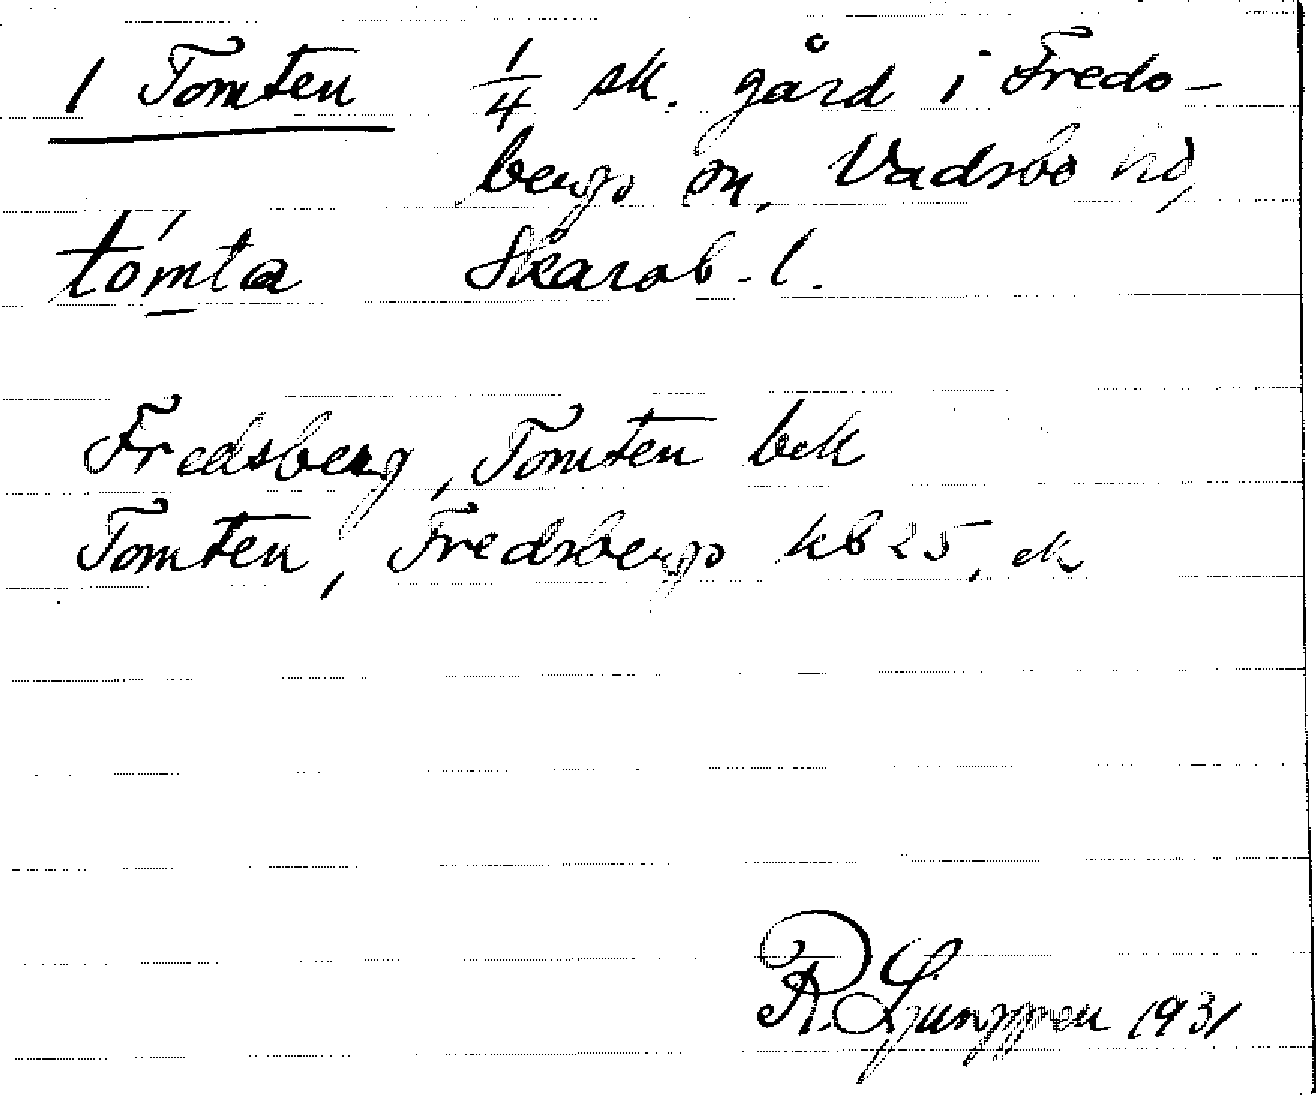 1 Tomten 1/4 sk. gård i Freds-
bergs sn, Vadsbo hd,
tómta Skarab. l.
Fredsberg, Tomten bek
Tomten, Fredsbergs kb 25, ek
R. Ljunggren 1931